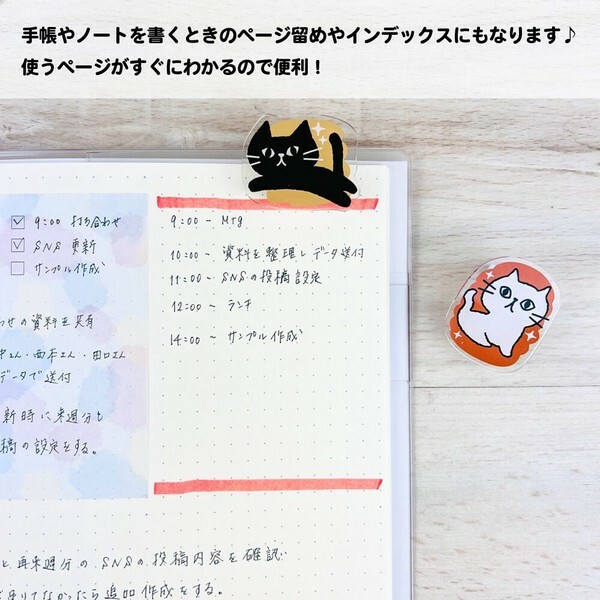 手帳やノートを書くときのページ留めやインデックスにもなります♪
使うページがすぐにわかるので便利！
9:00 打ち合わせ
SNS 更新
サンプル作成
わせの資料を共有
さん・西本さん・田口さん
データで送付
新時に来週分も
稿の設定をする。
9:00 ~ Mtg
10:00 ~ 資料を整理しデータ送付
11:00 ~ SNSの投稿設定
12:00 ~ ランチ
14:00 ~ サンプル作成
再来週分の、SNSの投稿内容を確認
足りてなかったら追加作成をする。